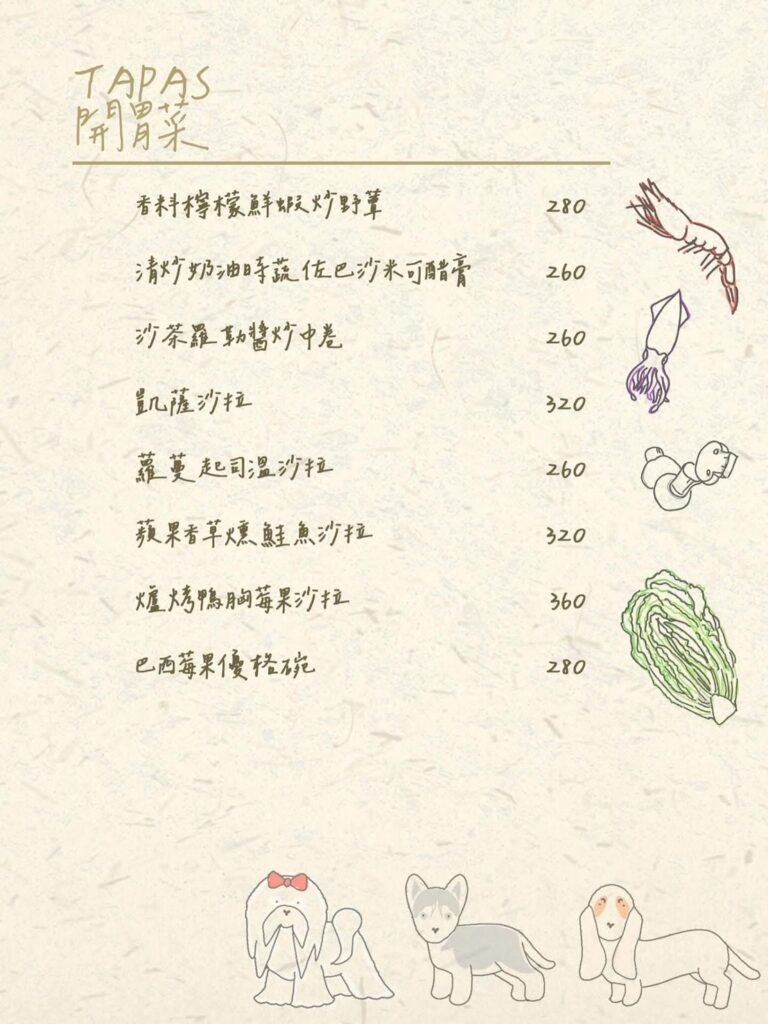 TAPAS
開胃菜
香料檸檬鮮蝦炒野蕈 280
清炒奶油時蔬佐巴沙米可醋膏 260
沙茶羅勒醬炒中卷 260
凱薩沙拉 320
蘿蔓起司溫沙拉 260
蘋果香草燻鮭魚沙拉 320
爐烤鴨胸莓果沙拉 360
巴西莓果優格碗 280